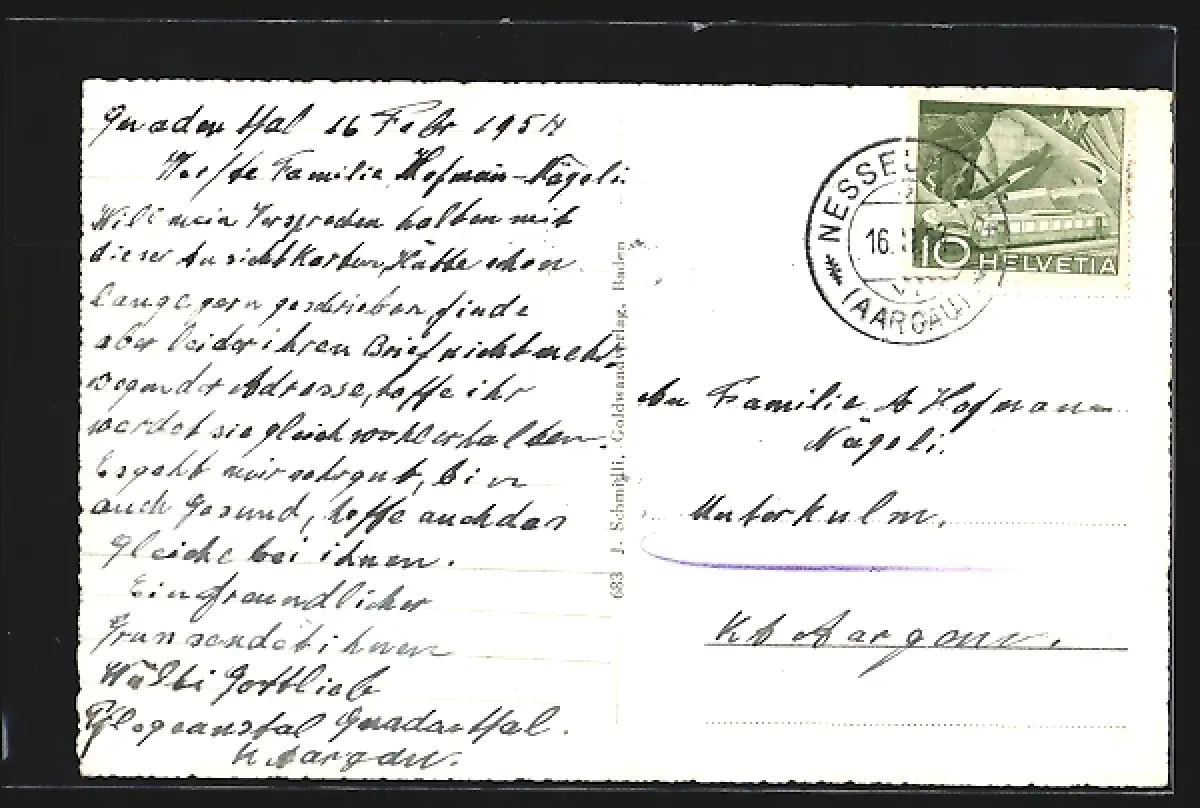 Gnadenthal 16 Febr 1954
Werte Familie Hofmann-Nägeli
Will mein Versprechen halten mit
dieser Ansichtkarten, Hätte schon
lange gern geschrieben, finde
aber leider ihren Brief nicht mehr
wegen der Adresse, hoffe ihr
werdet sie gleich wohl erhalten.
Es geht mir sehr gut, bin
auch Gesund, hoffe auch das
Gleiche bei ihnen.
Ein freundlicher
Grun sendet ihnen
Wälti Gottlieb
Pflegeanstal Gnadenthal.
K Aargau.
683 J. Schmidli, Goldwandverlag, Baden
NESSE
16.
(AARGAU)
10 HELVETIA
An Familie A Hofmann
Nägeli.
Unterkulm.
Kt Aargau.